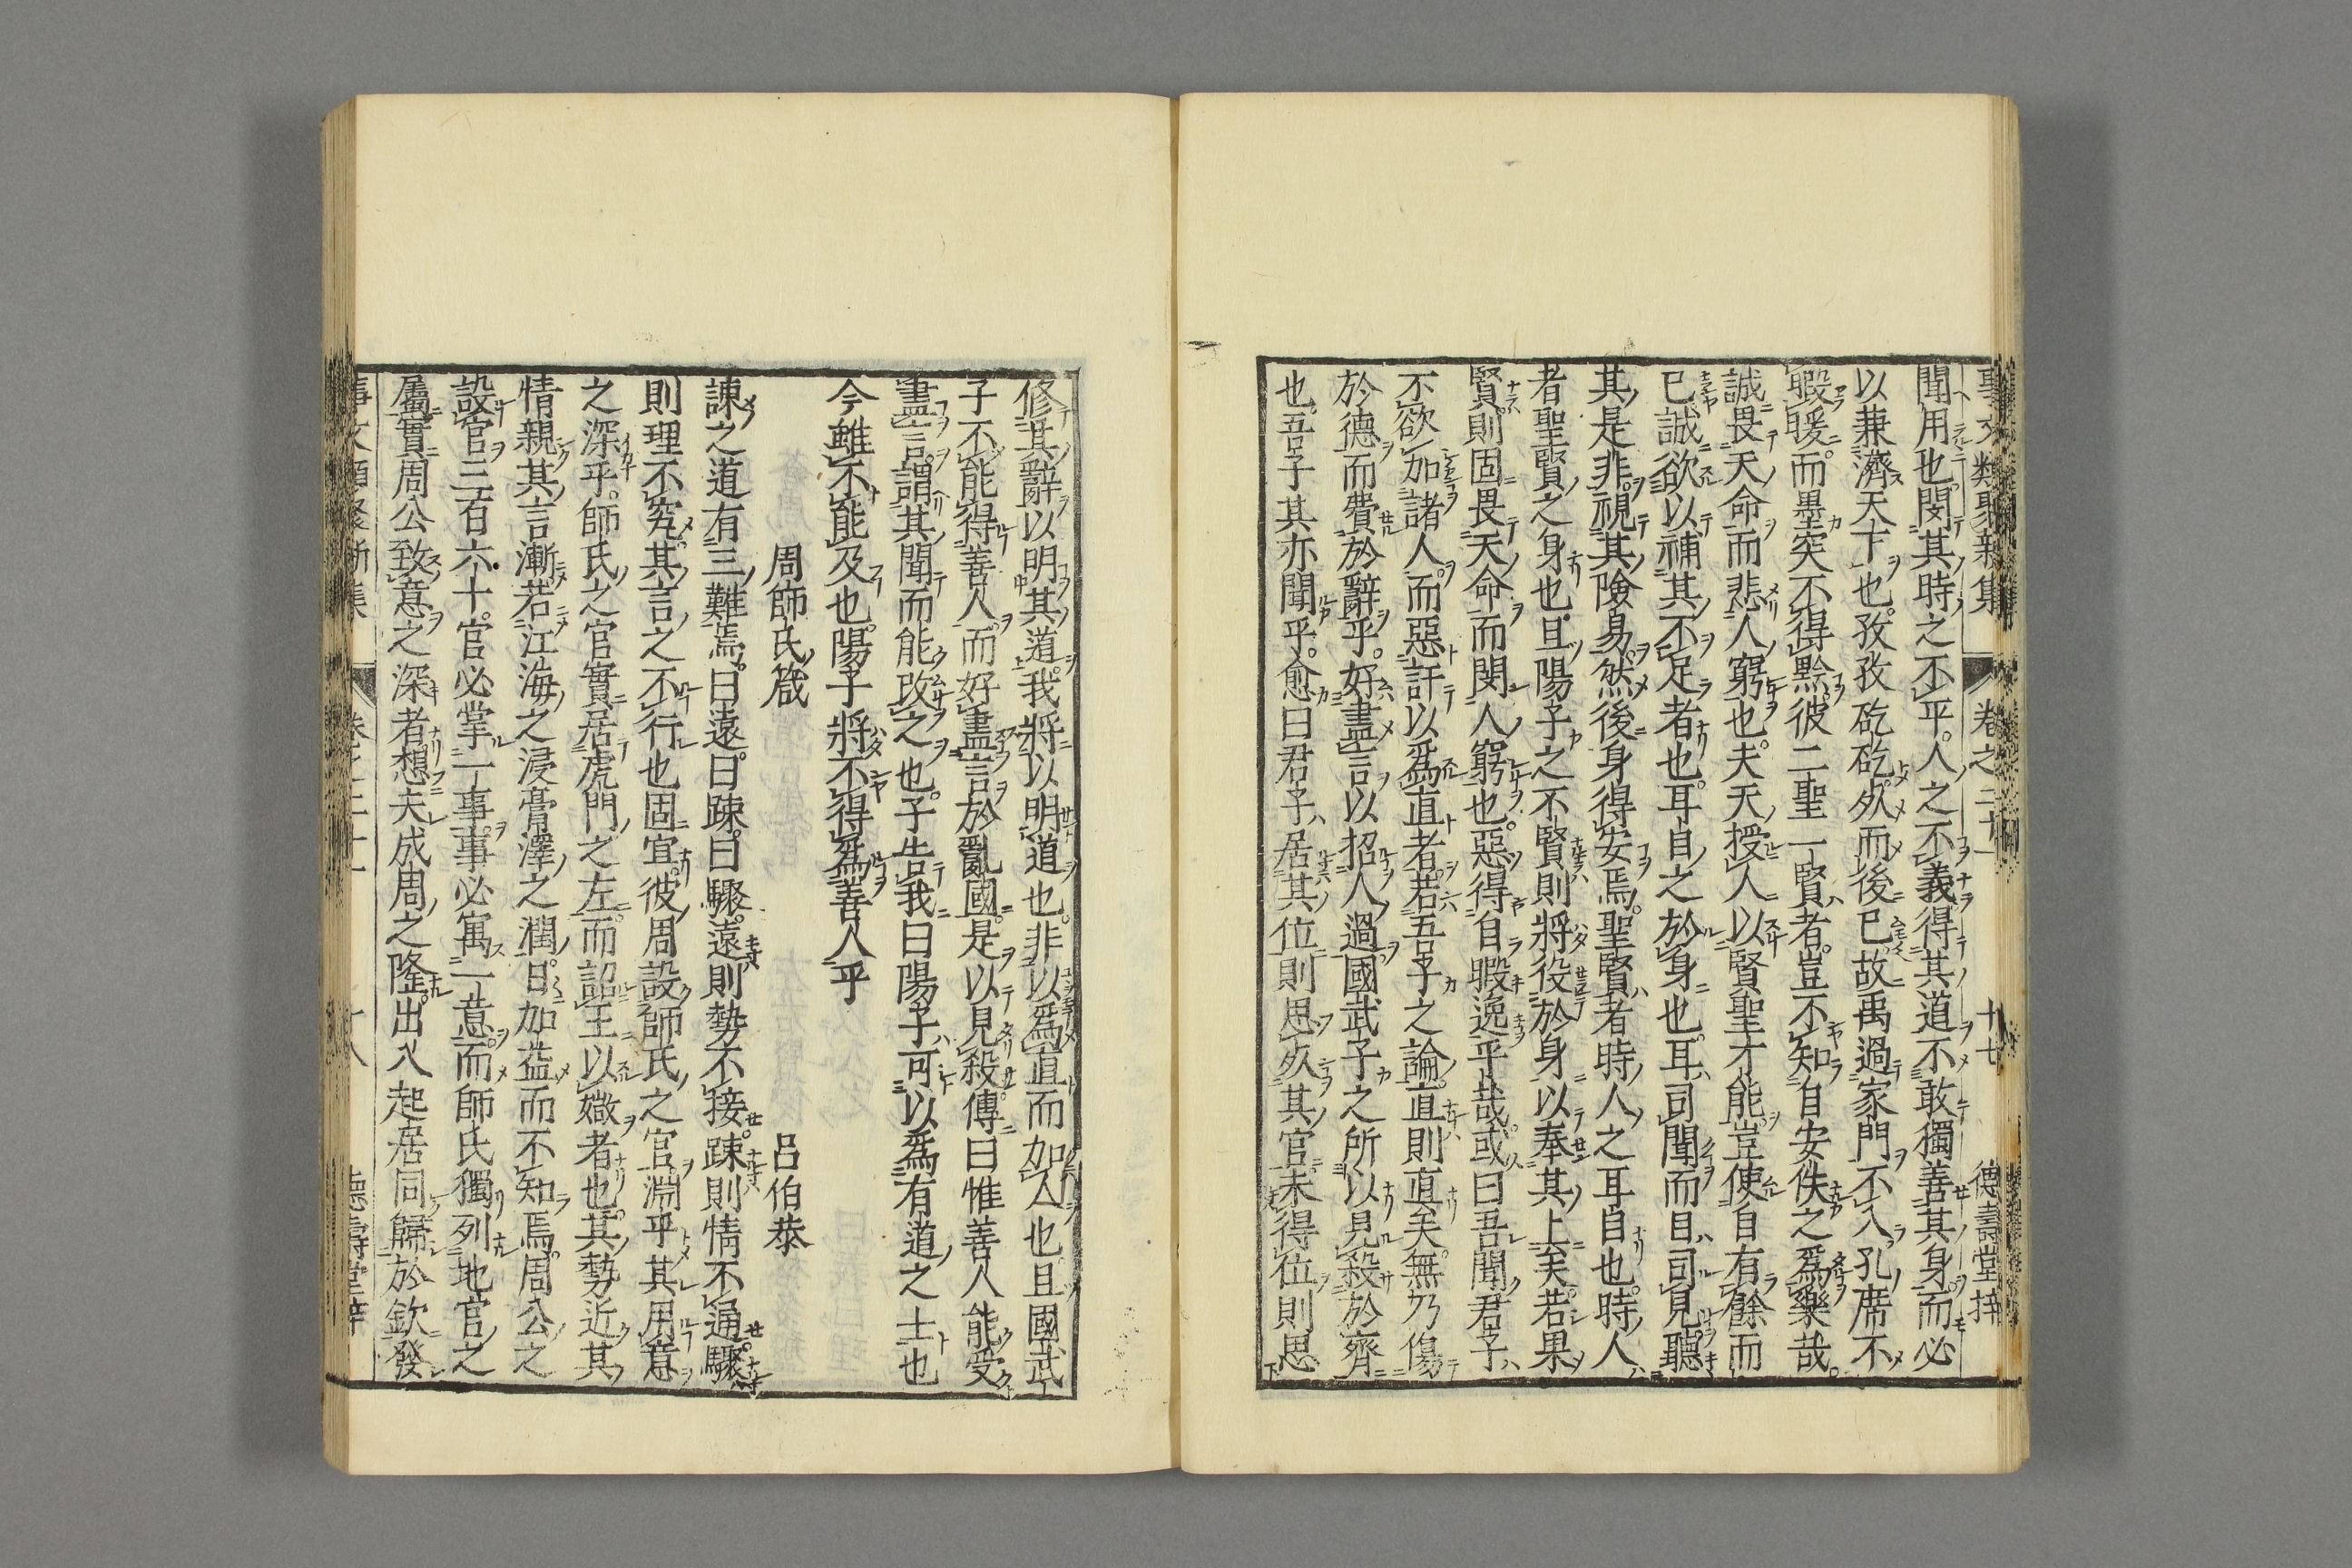 事文類聚新集 卷之二十一 十七 德壽堂梓
聞用也閔其時之不平。人之不義得其道不敢獨善其身。而必
以兼濟天下也。孜孜矻矻。死而後已。故禹過家門不入孔席不
暇暖。而墨突不得黔。彼二聖一賢者。豈不知自安佚之爲樂哉。
誠畏天命而悲人窮也。夫天授人以賢聖才能。豈使自有餘而
已誠欲以補其不足者也。耳自之於身也。耳司聞而目司見聽
其是非。視其險易。然後身得安焉。聖賢者時人之耳自也。時人
者聖賢之身也。且陽子之不賢則將役於身以奉其上矣。若果
賢。則固畏天命而閔人窮也。惡得自暇逸乎哉。或曰吾聞君子
不欲加諸人。而惡訐以爲直者。若吾子之論。直則直矣。無乃傷
於德而費於辭乎。好盡言以招人過。國武子之所以見殺於齊
也。吾子其亦聞乎。愈曰君子居其位則思死其官。未得位則思
修其辭以明其道。我將以明道也。非以爲直而加人也。且國武
子不能得善人。而好盡言於亂國。是以見殺。傳曰惟善人能受
盡言。謂其聞而能改之也。子告我曰陽子可以爲有道之士也
今雖不能及也。陽子將不得爲善人乎
周師氏箴 呂伯恭
諫之道有三難焉。曰遠。曰踈。曰驟。遠則勢不接。踈則情不通。驟
則理不究。其言之不行也固宜。彼周設師氏之官。淵乎其用意
之深乎。師氏之官實居虎門之左。而詔王以媺者也。其勢近其
情親其言漸若江海之浸膏澤之潤。日加益而不知焉。周公之
設官三百六十。官必掌一事。事必寓一意。而師氏獨列地官之
屬實周公致意之深者想夫成周之隆。出入起居同歸於欽發
事文類聚新集 卷之二十一 十八 德壽堂梓